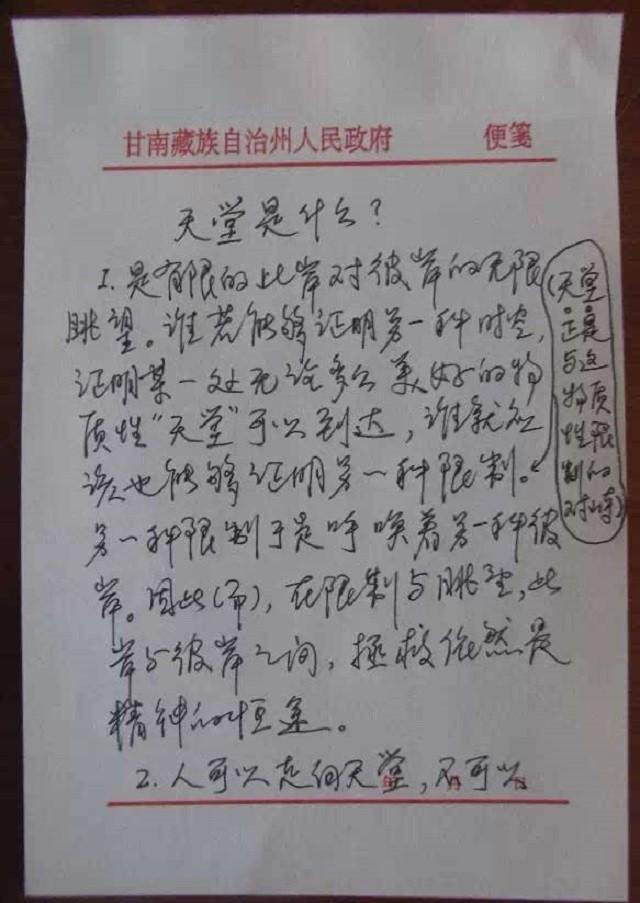 甘南藏族自治州人民政府 便笺
天堂是什么？
1.是有限的此岸对彼岸的无限
眺望。谁若能够证明另一种时空，
证明某一处无论多么美好的物
质性“天堂”可以到达，谁就应
该也能够证明另一种限制。
另一种限制于是呼唤着另一种彼
岸。因此(而)，在限制与眺望、此
岸与彼岸之间，拯救依然是
精神的恒途。
2.人可以走向天堂，不可以
(天堂
正是
与这
物质
性限
制的
对峙)